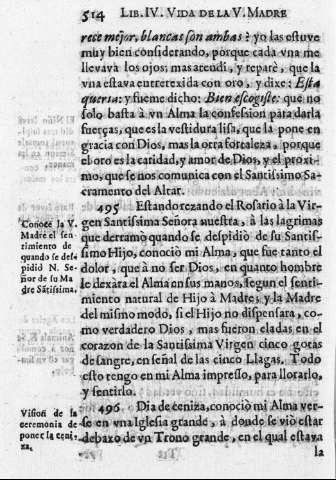 514 LIB. IV. VIDA DE LA V. MADRE
rece mejor, blancas son ambas? yo las estuve
muy bien considerando, porque cada vna me
llevava los ojos; mas atendi, y reparè, que la
vna estava entretexida con oro, y dixe: Esta
queria: y fueme dicho: Bien escogiste: que no
solo basta à vn Alma la confession para darla
fuerças, que es la vestidura lisa, que la pone en
gracia con Dios, mas la otra fortaleza, porque
el oro es la caridad, y amor de Dios, y el proxi-
mo, que se nos comunica con el Santissimo Sa-
cramento del Altar.
495 Estando rezando el Rosario à la Vir-
gen Santissima Señora nuestra, à las lagrimas
que derramò quando se despidiò de su Santis-
simo Hijo, conociò mi Alma, que fue tanto el
dolor, que à no ser Dios, en quanto hombre
le dexàra el Alma en sus manos, segun el senti-
miento natural de Hijo à Madre; y la Madre
del mismo modo, si el Hijo no dispensara, co-
mo verdadero Dios, mas fueron eladas en el
corazon de la Santissima Virgen cinco gotas
de sangre, en señal de las cinco Llagas. Todo
esto tengo en mi Alma impresso, para llorarlo,
y sentirlo.
496 Dia de ceniza, conociò mi Alma ver-
se en vna Iglesia grande, à donde se viò estar
debaxo de vn Trono grande, en el qual estava
la
Conoce la V.
Madre el sen-
timiento de
quando se des-
pidiò N. Se-
ñor de su Ma
dre Sãtissima.
Vision de la
ceremonia de
poner la ceni-
za.